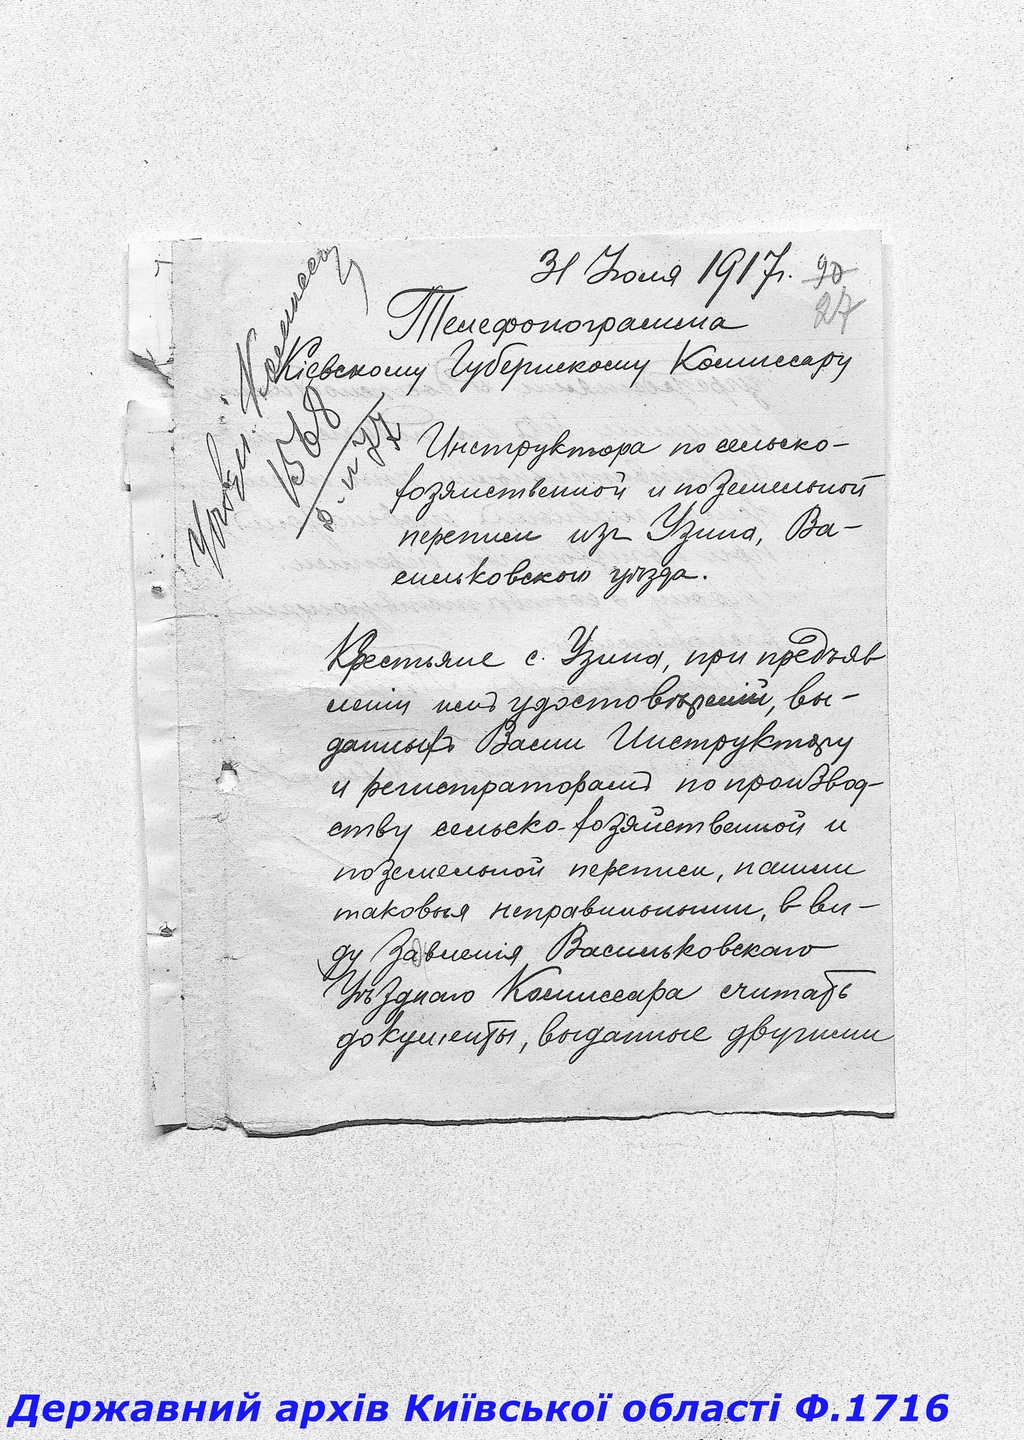 31 Июля 1917г.
90
27
Телефонограмма
Кіевскому Губернскому Комиссару
Комиссару
1568
31 VII
Инструктора по сельско-
хозяйственной и поземельной
переписи изъ Узина, Ва-
сильковскаго уѣзда.
Крестьяне с. Узина, при предъяв
леніи имъ удостовѣреній, вы-
данныхъ Вами Инструктору
и регистраторамъ по производ-
ству сельско-хозяйственной и
поземельной переписи, нашли
таковыя неправильными, в ви-
ду Заявленія Васильковскаго
Уѣзднаго Комиссара считать
документы, выданные другими
Державний архів Київської області Ф.1716